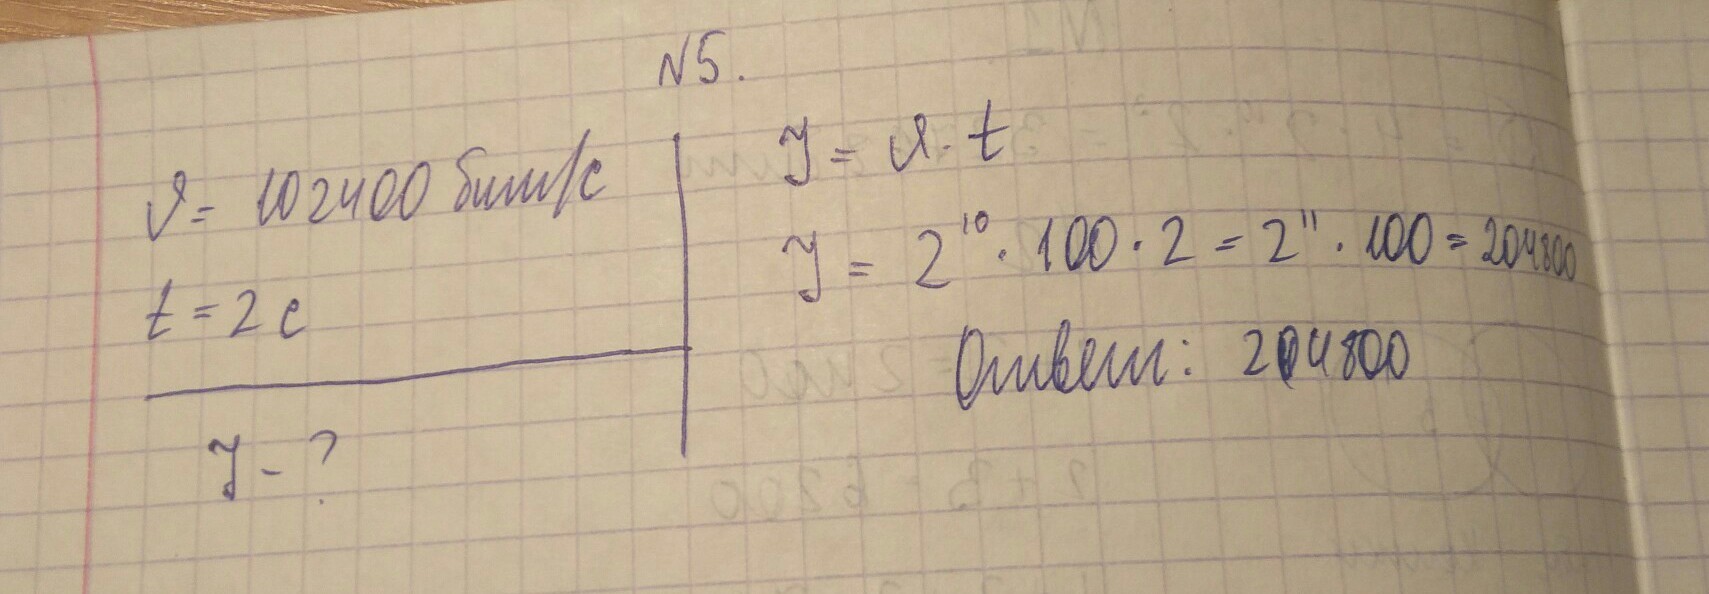 N5.
υ = 102400 бит/с
t = 2 с
J - ?
J = υ · t
J = 2¹⁰ · 100 · 2 = 2¹¹ · 100 = 204800
Ответ: 204800